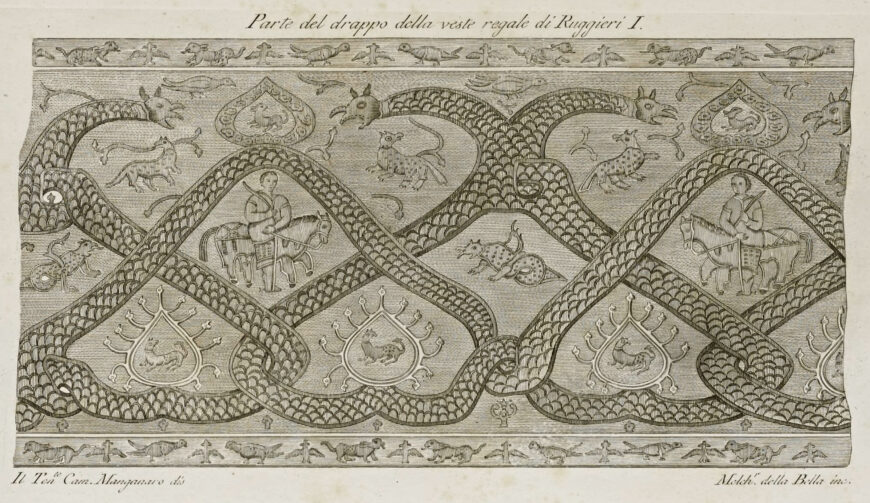 Parte del drappo della veste regale di Ruggieri I.
Il Ten.te Cam. Manganaro dis
Molch.r della Bella inc.